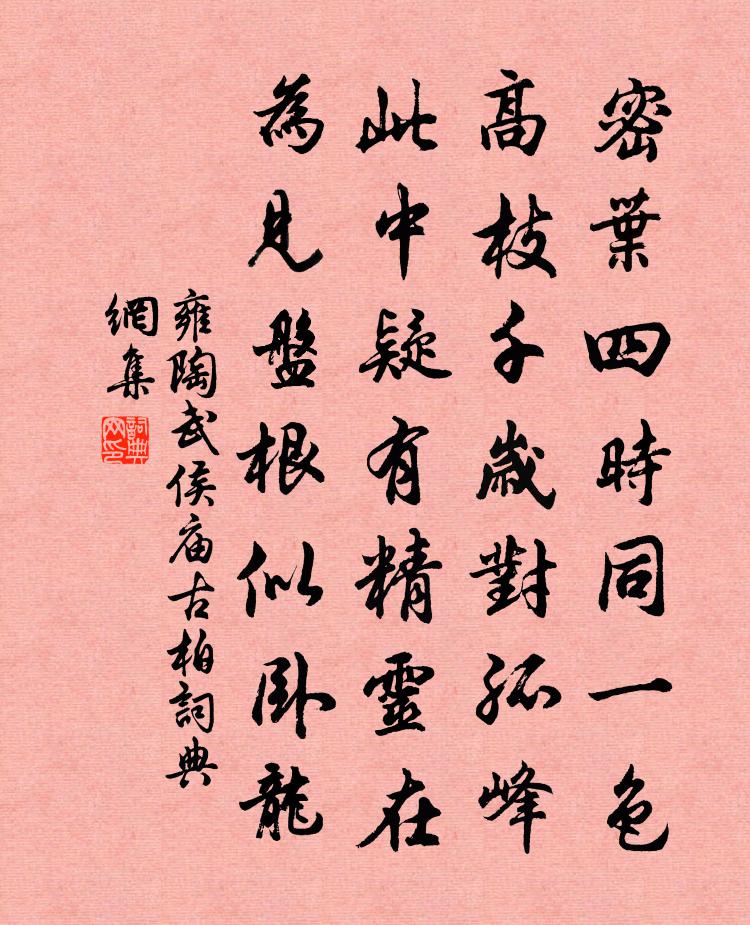 密葉四時同一色
高枝千歲對孤峰
此中疑有精靈在
為見盤根似卧龍
雍陶武侯庙古柏詞典
網集
詞典網印